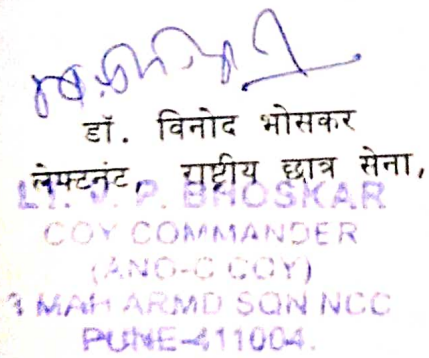 डॉ. विनोद भोसकर
लेफ्टनंट, राष्ट्रीय छात्र सेना,
LT. V. P. BHOSKAR
COY COMMANDER
(ANO-C COY)
3 MAH ARMD SQN NCC
PUNE-411004.